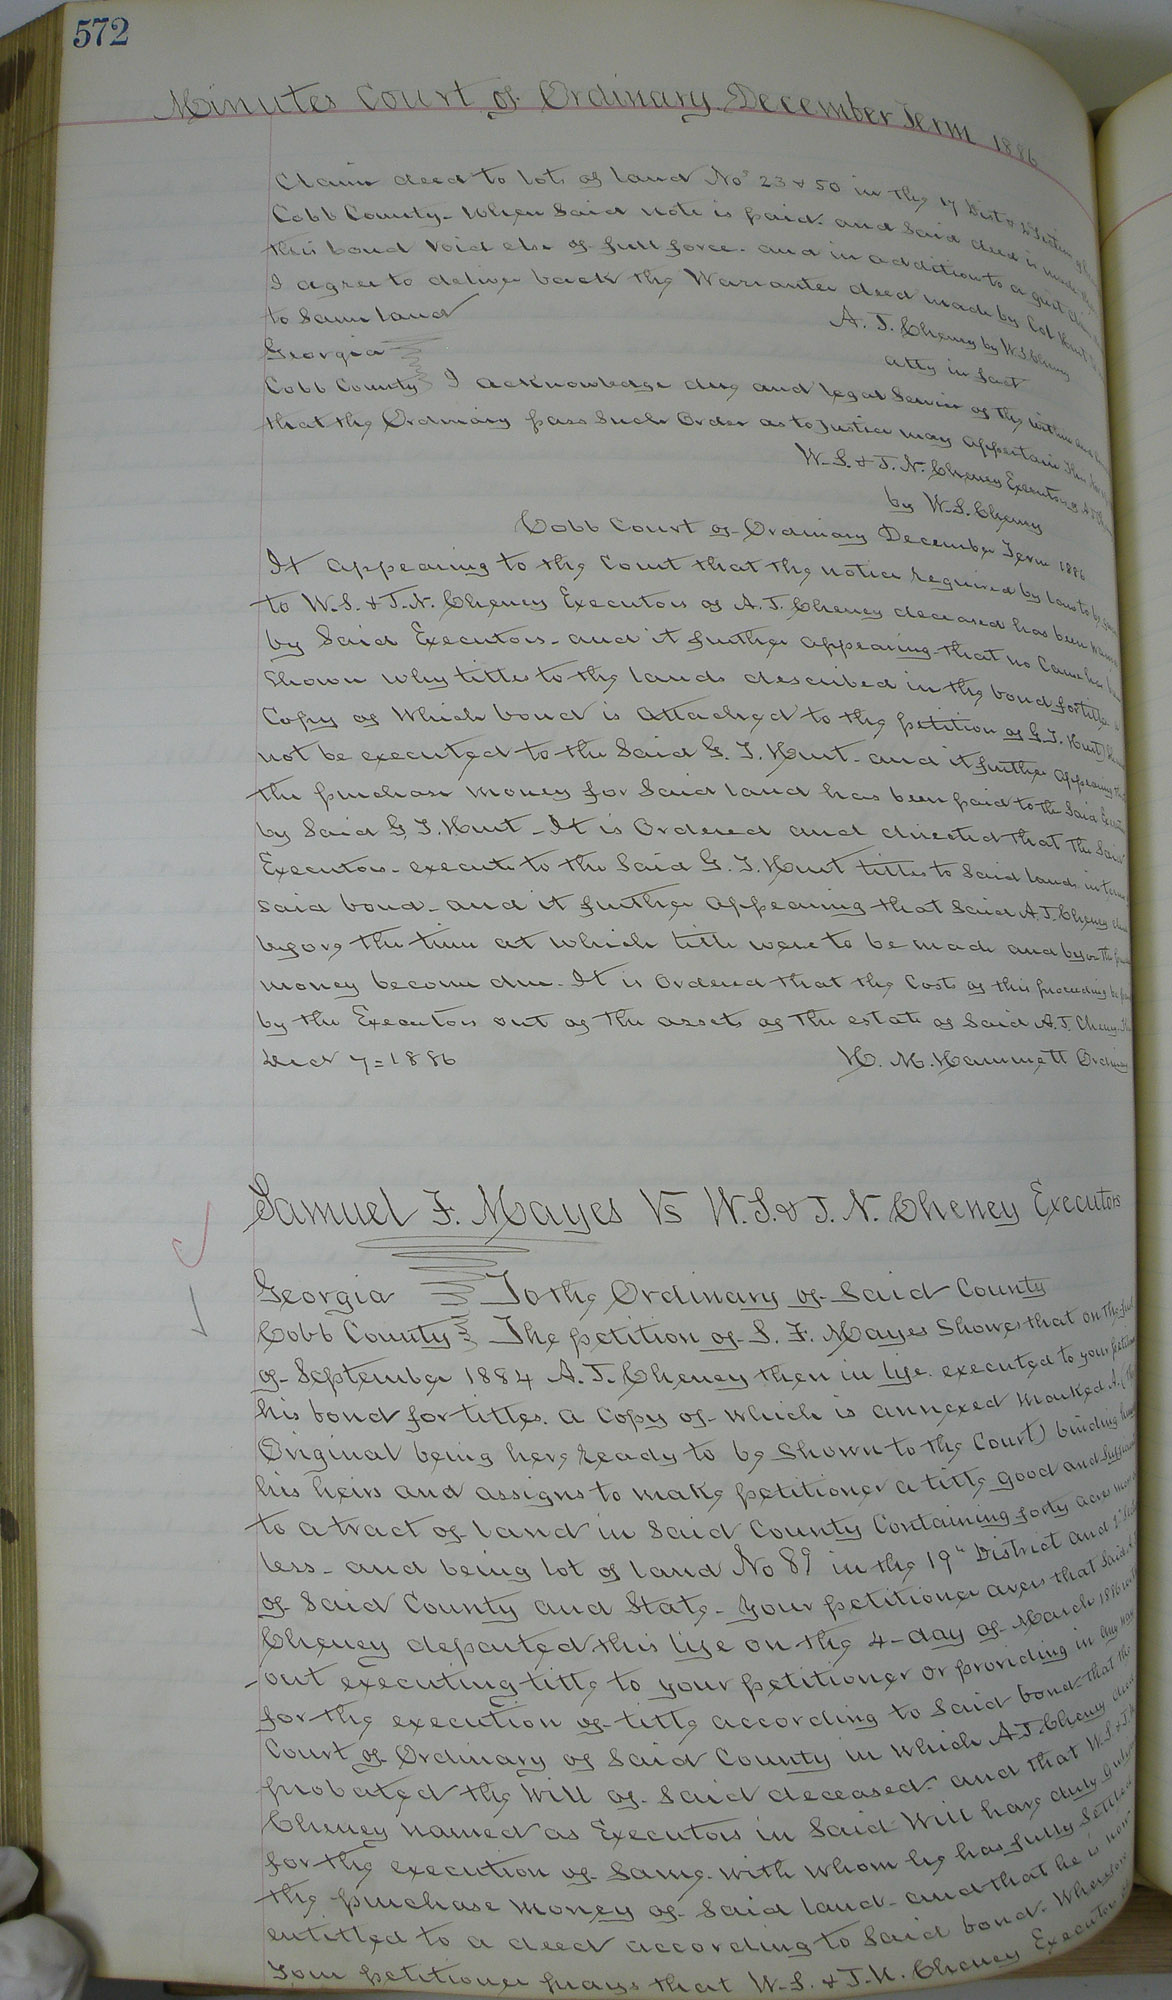 572
Minutes Court of Ordinary December Term 1886
Claim deed to lots of land Nos 23 & 50 in the 17 Dist & 2d Section of
Cobb County - When Said note is paid and Said deed is made then
this bond void else of full force. and in addition to a quit claim
I agree to deliver back the Warrantee deed made by Col Hunt
to Same land
A. J. Cheney by W.S. Cheney
atty in fact
Georgia
Cobb County I acknowledge due and legal Service of the within and
that the Ordinary pass Such Order as to Justice may appertain This
W. S. & J. N. Cheney Executors of A J Cheney
by W. S. Cheney
Cobb Court of Ordinary December Term 1886
It appearing to the Court that the notice required by law to be given
to W. S. & J. N. Cheney Executors of A. J. Cheney deceased has been waived
by Said Executors - and it further appearing that no Cause has been
Shown why titles to the lands described in the bond for titles a
Copy of Which bond is attached to the petition of G. T. Hunt
not be executed to the Said G. T. Hunt - and it further appearing that
the purchase Money for Said land has been paid to the Said Executors
by Said G T. Hunt - It is Ordered and directed that the Said
Executors - execute to the Said G. T. Hunt titles to Said lands in terms
said bond - and it further appearing that Said A. J. Cheney
before the time at which title were to be made and before the
money become due - It is Ordered that the Costs of this proceeding be paid
by the Executors out of the assets of the estate of Said A. J. Cheney
Decr 7 = 1886 H. M. Hammett Ordinary
Samuel F. Mayes Vs W. S. & J. N. Cheney Executors
Georgia To the Ordinary of Said County
Cobb County The petition of S. F. Mayes Shows that on the
of September 1884 A. J. Cheney then in life executed to your petitioner
his bond for titles. a Copy of which is annexed marked A. (
Original being here ready to be Shown to the Court) binding
his heirs and assigns to make petitioner a title good and Sufficient
to a tract of land in Said County Containing forty acres more or
less - and being lot of land No 89 in the 19th District and 2d
of Said County and State - Your petitioner avers that Said A. J.
Cheney departed this life on the 4 - day of March 1886 with
out executing title to your petitioner or providing in any way
for the execution of title according to Said bond that the
Court of Ordinary of Said County in which A J. Cheney
probated the Will of Said deceased - and that W. S. & J. N.
Cheney named as Executors in Said Will have duly
for the execution of Same. with Whom he has fully Settled
the purchase money of Said land - and that he is now
entitled to a deed according to Said bond. Wherefore
Your petitioner prays that W. S. & J. N. Cheney Executors